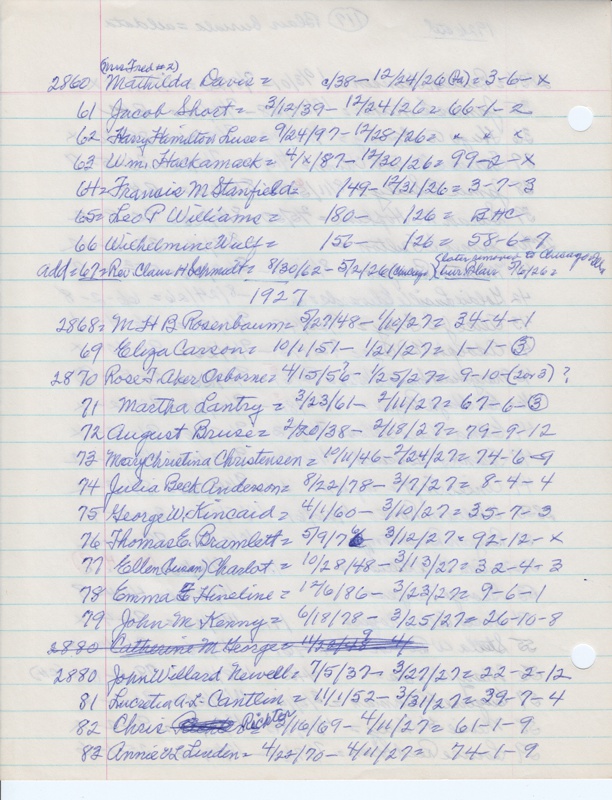 (Mrs Fred #2)
2860 Mathilda Davis = c/38 - 12/24/26 (Pa) = 3-6-x
61 Jacob Short = 3/12/39 - 12/24/26 = 66-1-2
62 Harry Hamilton Luse = 9/24/97 - 12/28/26 = x x x
63 Wm. Hackamack = 4/x/87 - 12/30/26 = 99-2-x
64 = Francis M Stanfield = 149 - 12/31/26 = 3-7-3
65 = Leo P Williams = 180 - 126 = BHC
66 Wilhelmine Wulf = 156 - 126 = 58-6-7
add = 67 = Rev. Claus H Schmidt = 8/30/62 - 5/2/26 (Chicago) (later removed to Chicago
bur. Blair 5/6/26 =
1927
2868 = M H B Rosenbaum = 5/27/48 - 1/10/27 = 34-4-1
69 Eliza Carson = 10/1/51 - 1/21/27 = 1-1-3
2870 Rose T. Aber Osborne = 4/15/56? - 1/25/27 = 9-10-(2 or 3) ?
71 Martha Lantry = 3/23/61 - 2/11/27 = 67-6-3
72 August Bruse = 2/20/38 - 2/18/27 = 79-9-12
73 Mary Christina Christensen = 10/11/46 - 2/24/27 = 74-6-9
74 Julia Beck Anderson = 8/22/78 - 3/7/27 = 8-4-4
75 George W. Kincaid = 4/1/60 - 3/10/27 = 35-7-3
76 Thomas E. Bramlett = 5/9/76 3/12/27 = 92-12-x
77 Ellen (Susan) Charlot = 10/28/48 - 3/13/27 = 32-4-3
78 Emma E Hineline = 12/6/86 - 3/23/27 = 9-6-1
79 John M Kenny = 6/18/78 - 3/25/27 = 26-10-8
2880 Catherine M George =
2880 John Willard Newell = 7/5/37 - 3/27/27 = 22-2-12
81 Lucretia A. L. Cantlin = 11/1/52 - 3/31/27 = 39-7-4
82 Chris Richter 2/16/69 - 4/11/27 = 61-1-9
83 Annie V L Linden = 4/22/70 - 4/11/27 = 74-1-9